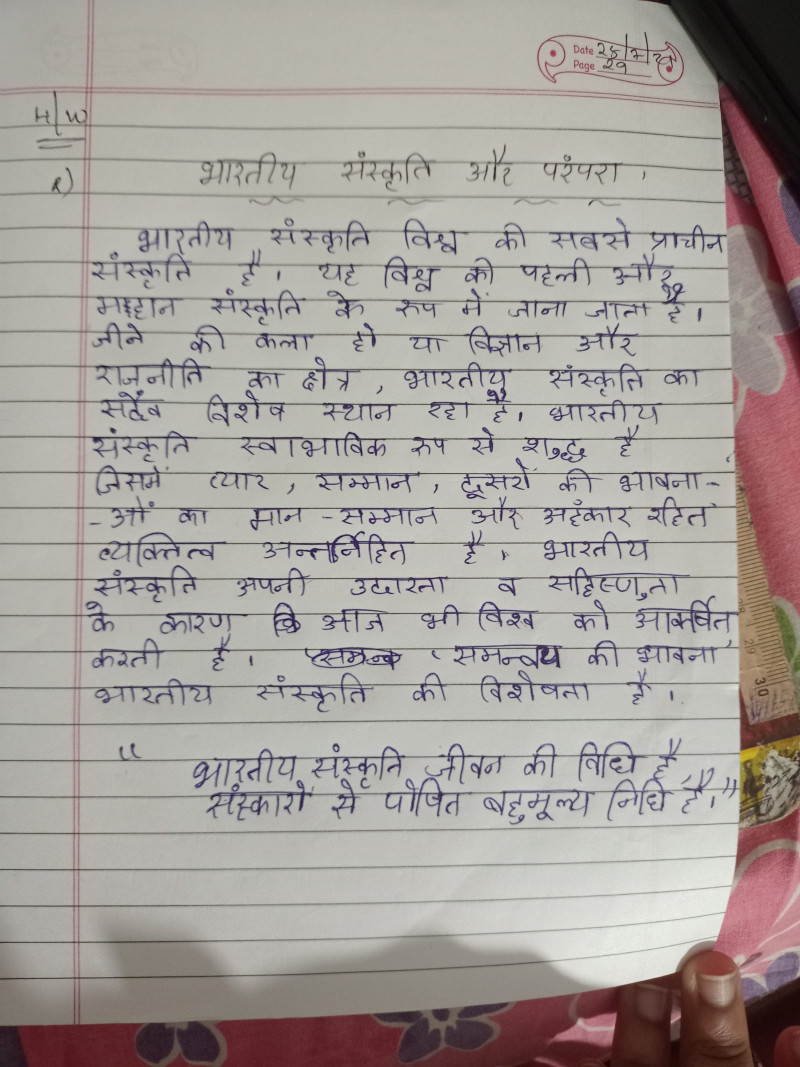 Date 28/7/25
Page 29
H/W
2) भारतीय संस्कृति और परंपरा ।
भारतीय संस्कृति विश्व की सबसे प्राचीन
संस्कृति है। यह विश्व की पहली और
महान संस्कृति के रूप में जाना जाता है।
जीने की कला हो या विज्ञान और
राजनीति का क्षेत्र, भारतीय संस्कृति का
सदैव विशेष स्थान रहा है। भारतीय
संस्कृति स्वाभाविक रूप से शुद्ध है
जिसमें प्यार, सम्मान, दूसरों की भावना-
-ओं का मान-सम्मान और अहंकार रहित
व्यक्तित्व अन्तर्निहित है। भारतीय
संस्कृति अपनी उदारता व सहिष्णुता
के कारण आज भी विश्व को आकर्षित
करती है। समन्वय की भावना
भारतीय संस्कृति की विशेषता है।
" भारतीय संस्कृति जीवन की विधि है,
संस्कारों से पोषित बहुमूल्य निधि है।"
30